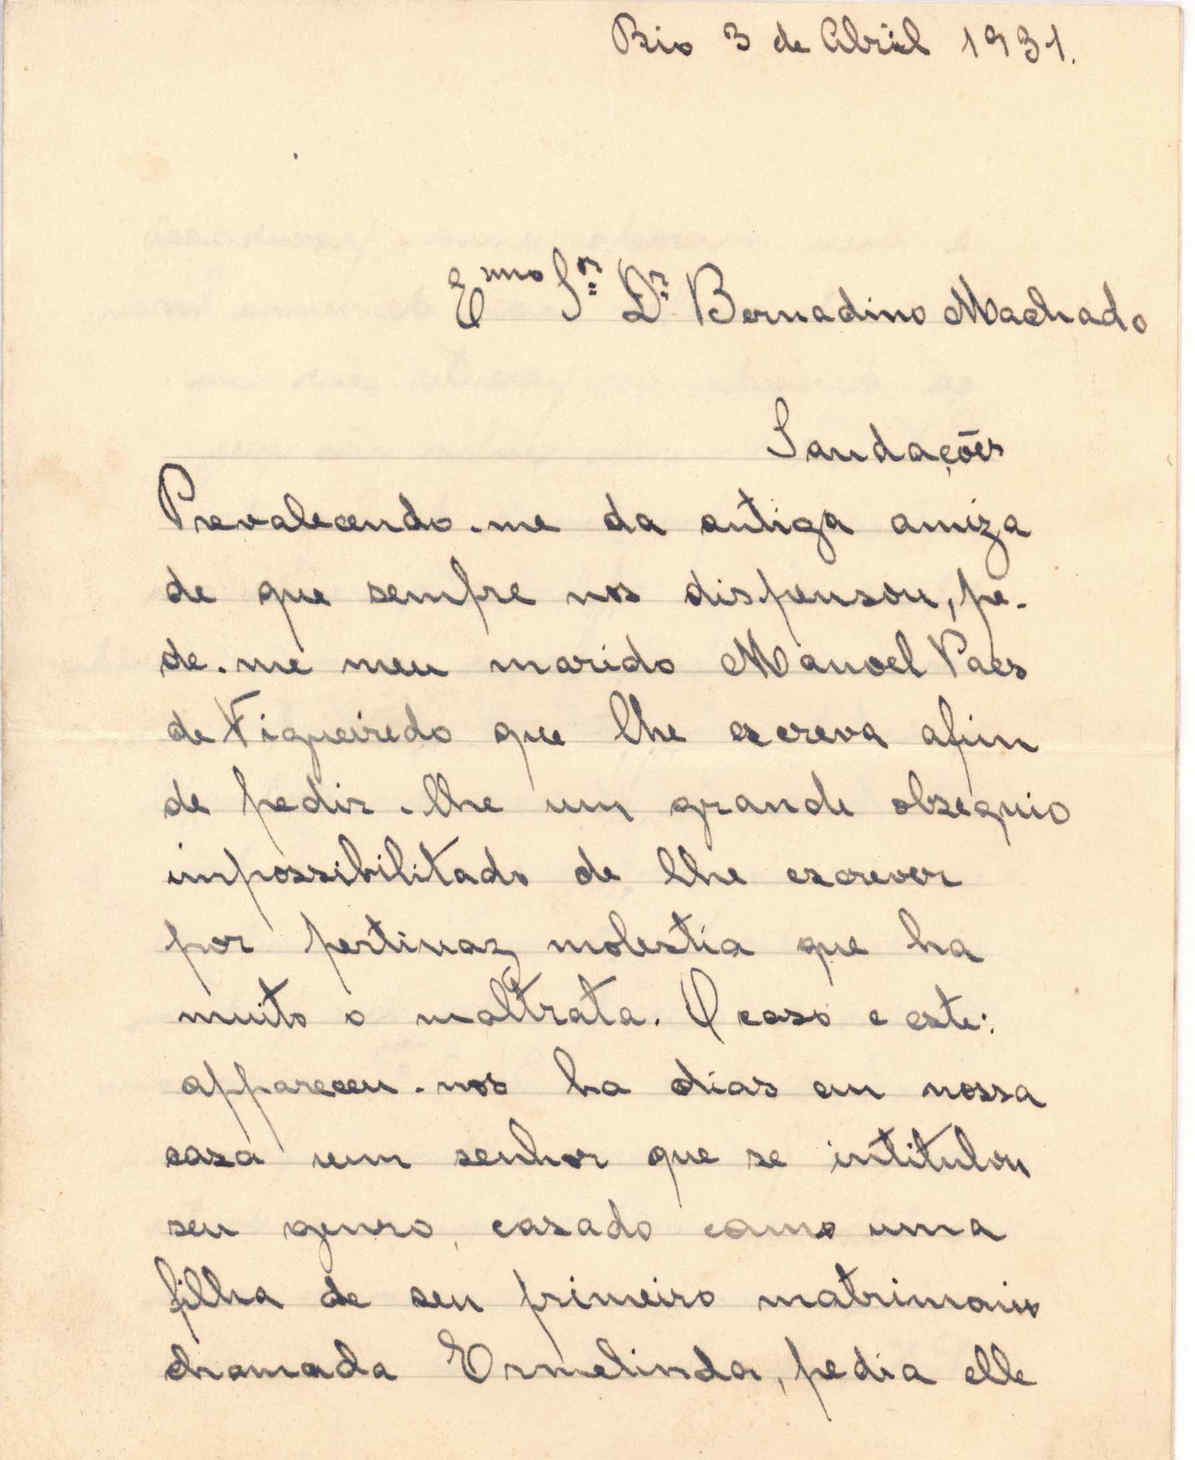 Rio 3 de Abril 1931.
Exmo Snr Dr Bernadino Machado
Saudações
Prevalecendo-me da antiga amiza
de que sempre nos dispensou, pe-
de-me meu marido Manoel Paes
de Figueiredo que lhe escreva afim
de pedir-lhe um grande obsequio
impossibilitado de lhe escrever
por pertinaz molestia que ha
muito o maltrata. O caso e este:
appareceu-nos ha dias em nossa
casa um senhor que se intitulou
seu genro, casado com uma
filha de seu primeiro matrimonio
chamada Ermelinda, pedia elle